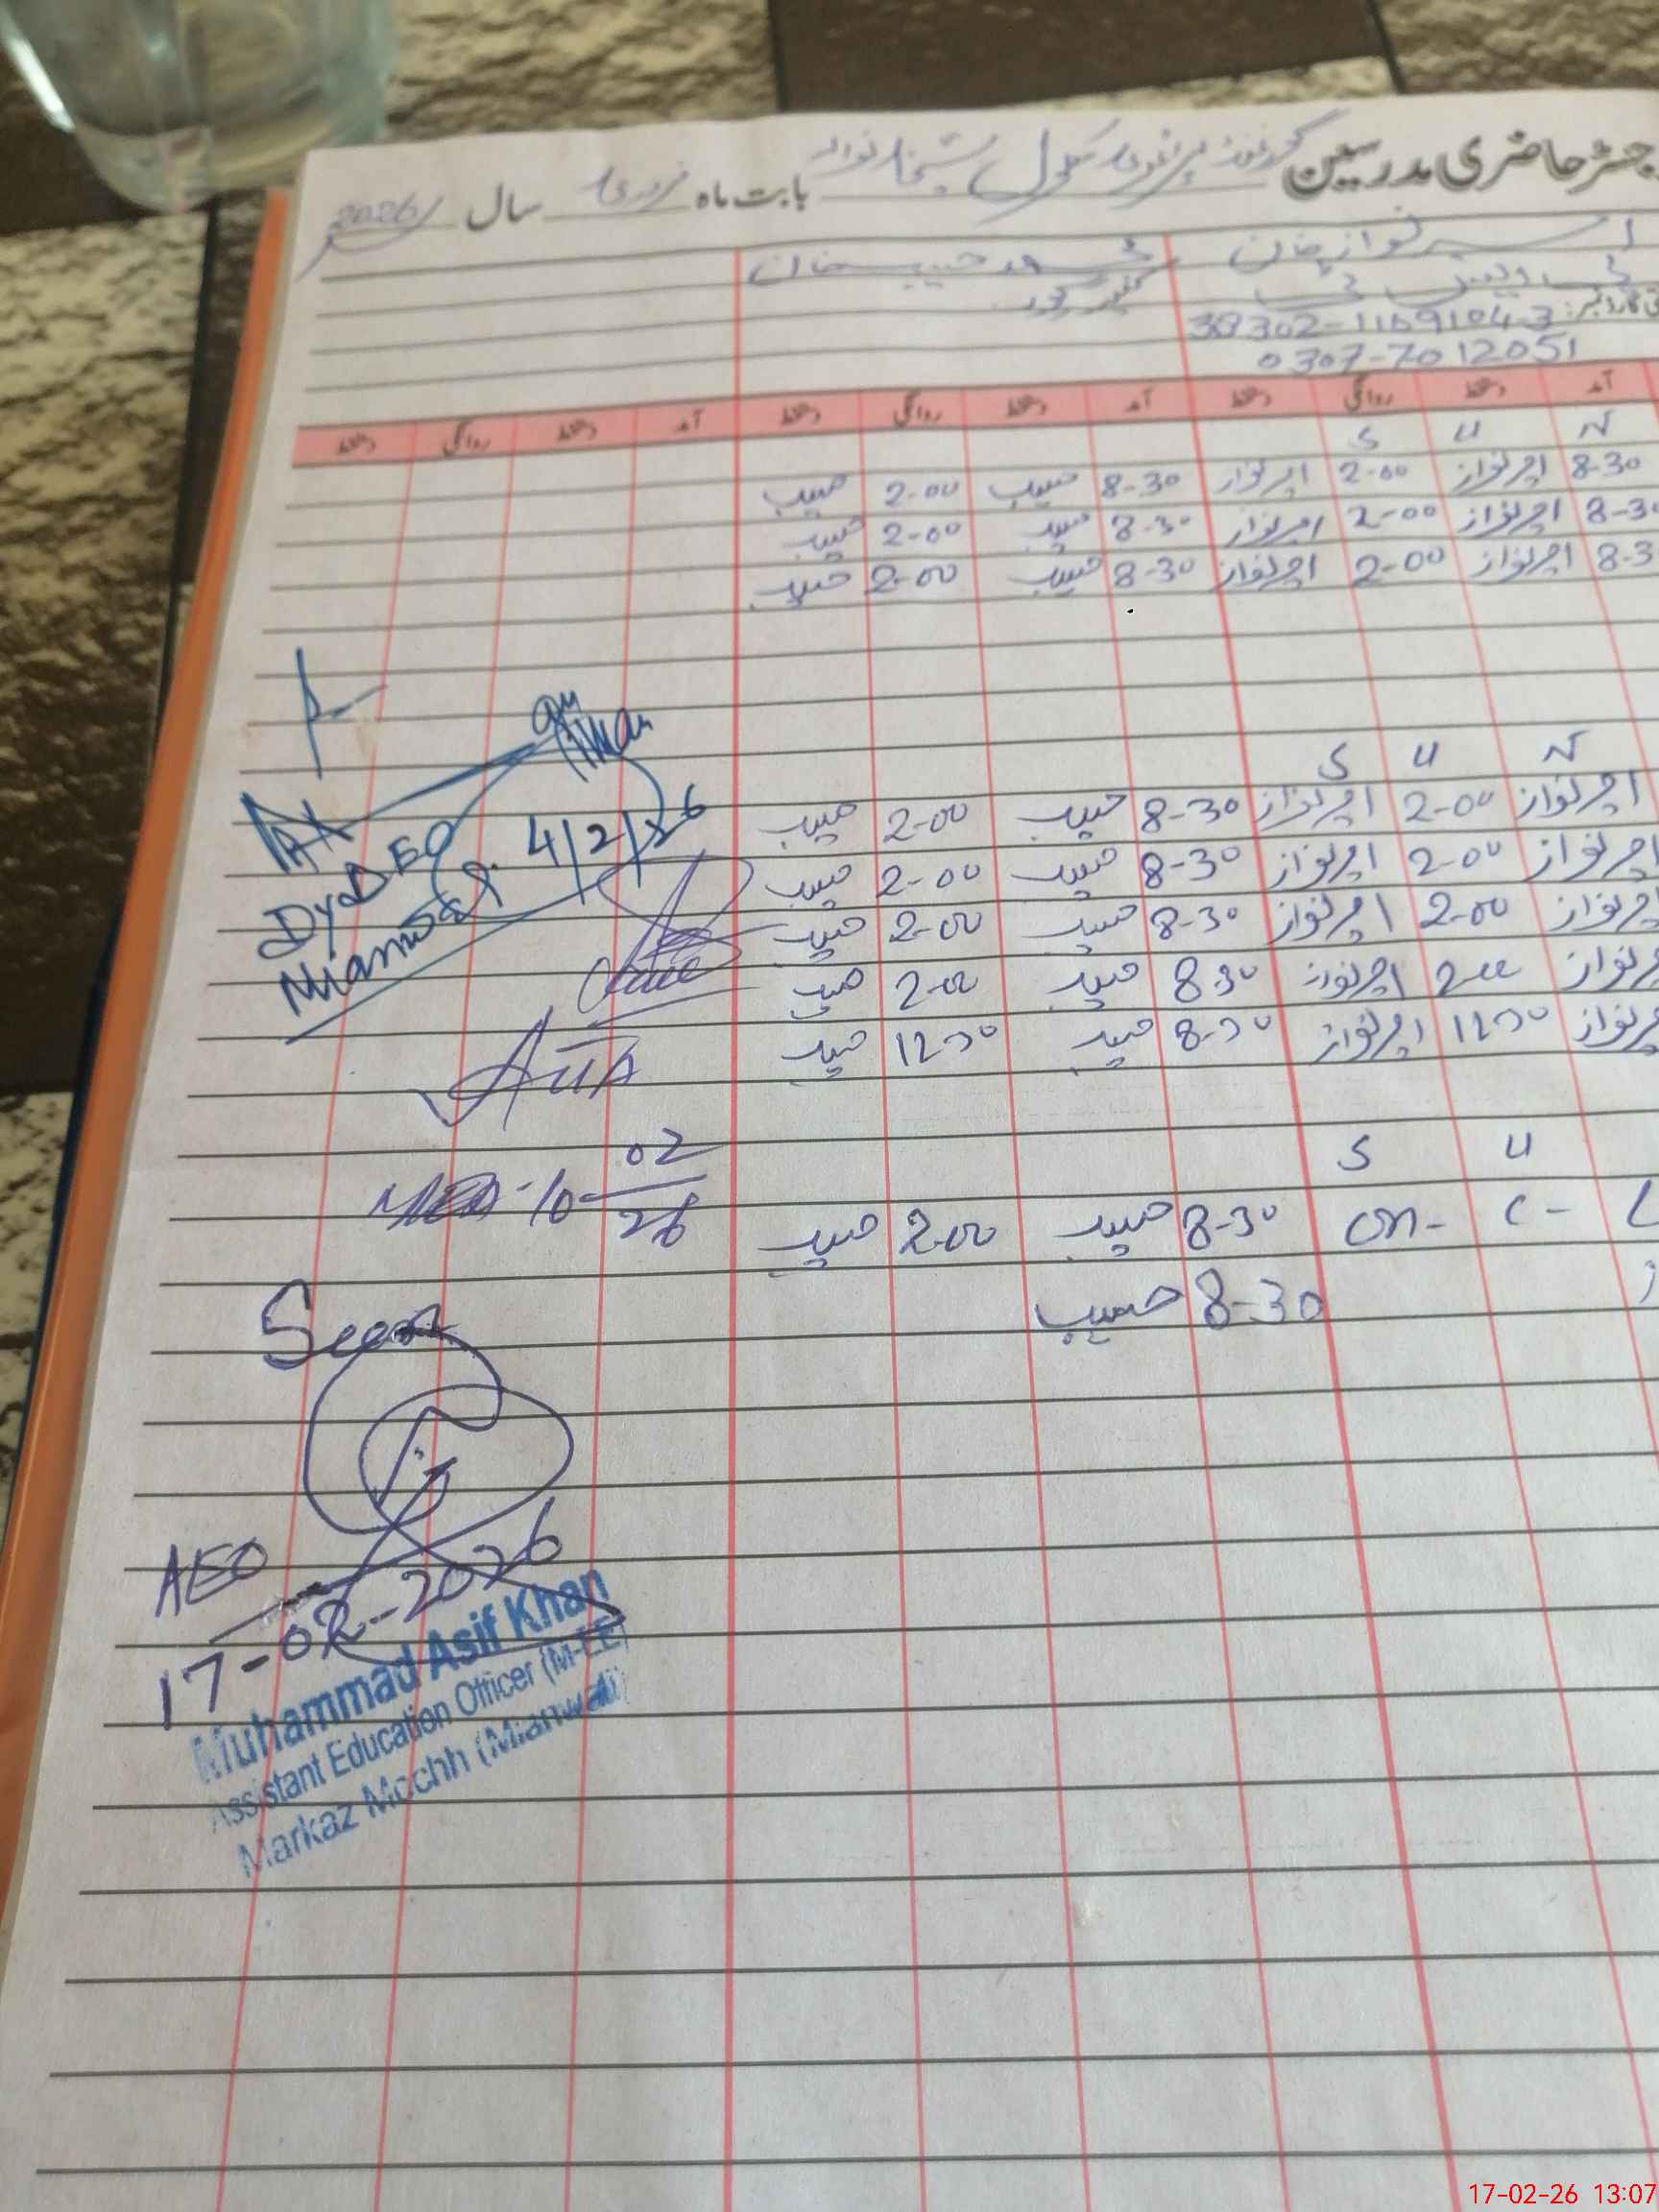 جسٹر حاضری مدرسین گورنمنٹ پرائمری سکول بابت ماہ فروری سال 2026
امیر نواز خان محمد حبیب خان
38302-1159104-3
0307-7012051
آمد دستخط روانگی دستخط آمد دستخط روانگی دستخط آمد دستخط روانگی دستخط
N U S
8-30 امیر نواز 2-00 امیر نواز 8-30 حبیب 2-00 حبیب
8-30 امیر نواز 2-00 امیر نواز 8-30 حبیب 2-00 حبیب
8-3 امیر نواز 2-00 امیر نواز 8-30 حبیب 2-00 حبیب
N U S
امیر نواز 2-00 امیر نواز 8-30 حبیب 2-00 حبیب
امیر نواز 2-00 امیر نواز 8-30 حبیب 2-00 حبیب
امیر نواز 2-00 امیر نواز 8-30 حبیب 2-00 حبیب
نواز 2-00 امیر نواز 8-30 حبیب 2-00 حبیب
نواز 12-00 امیر نواز 8-30 حبیب 12-00 حبیب
U S
L C- on- 8-30 حبیب 2-00 حبیب
8-30 حبیب
DyDEO
Mianwali 4/2/26
10-02/26
Seen
AEO
17-02-2026
Muhammad Asif Khan
Assistant Education Officer (M-EE)
Markaz Mochh (Mianwali)
17-02-26 13:07